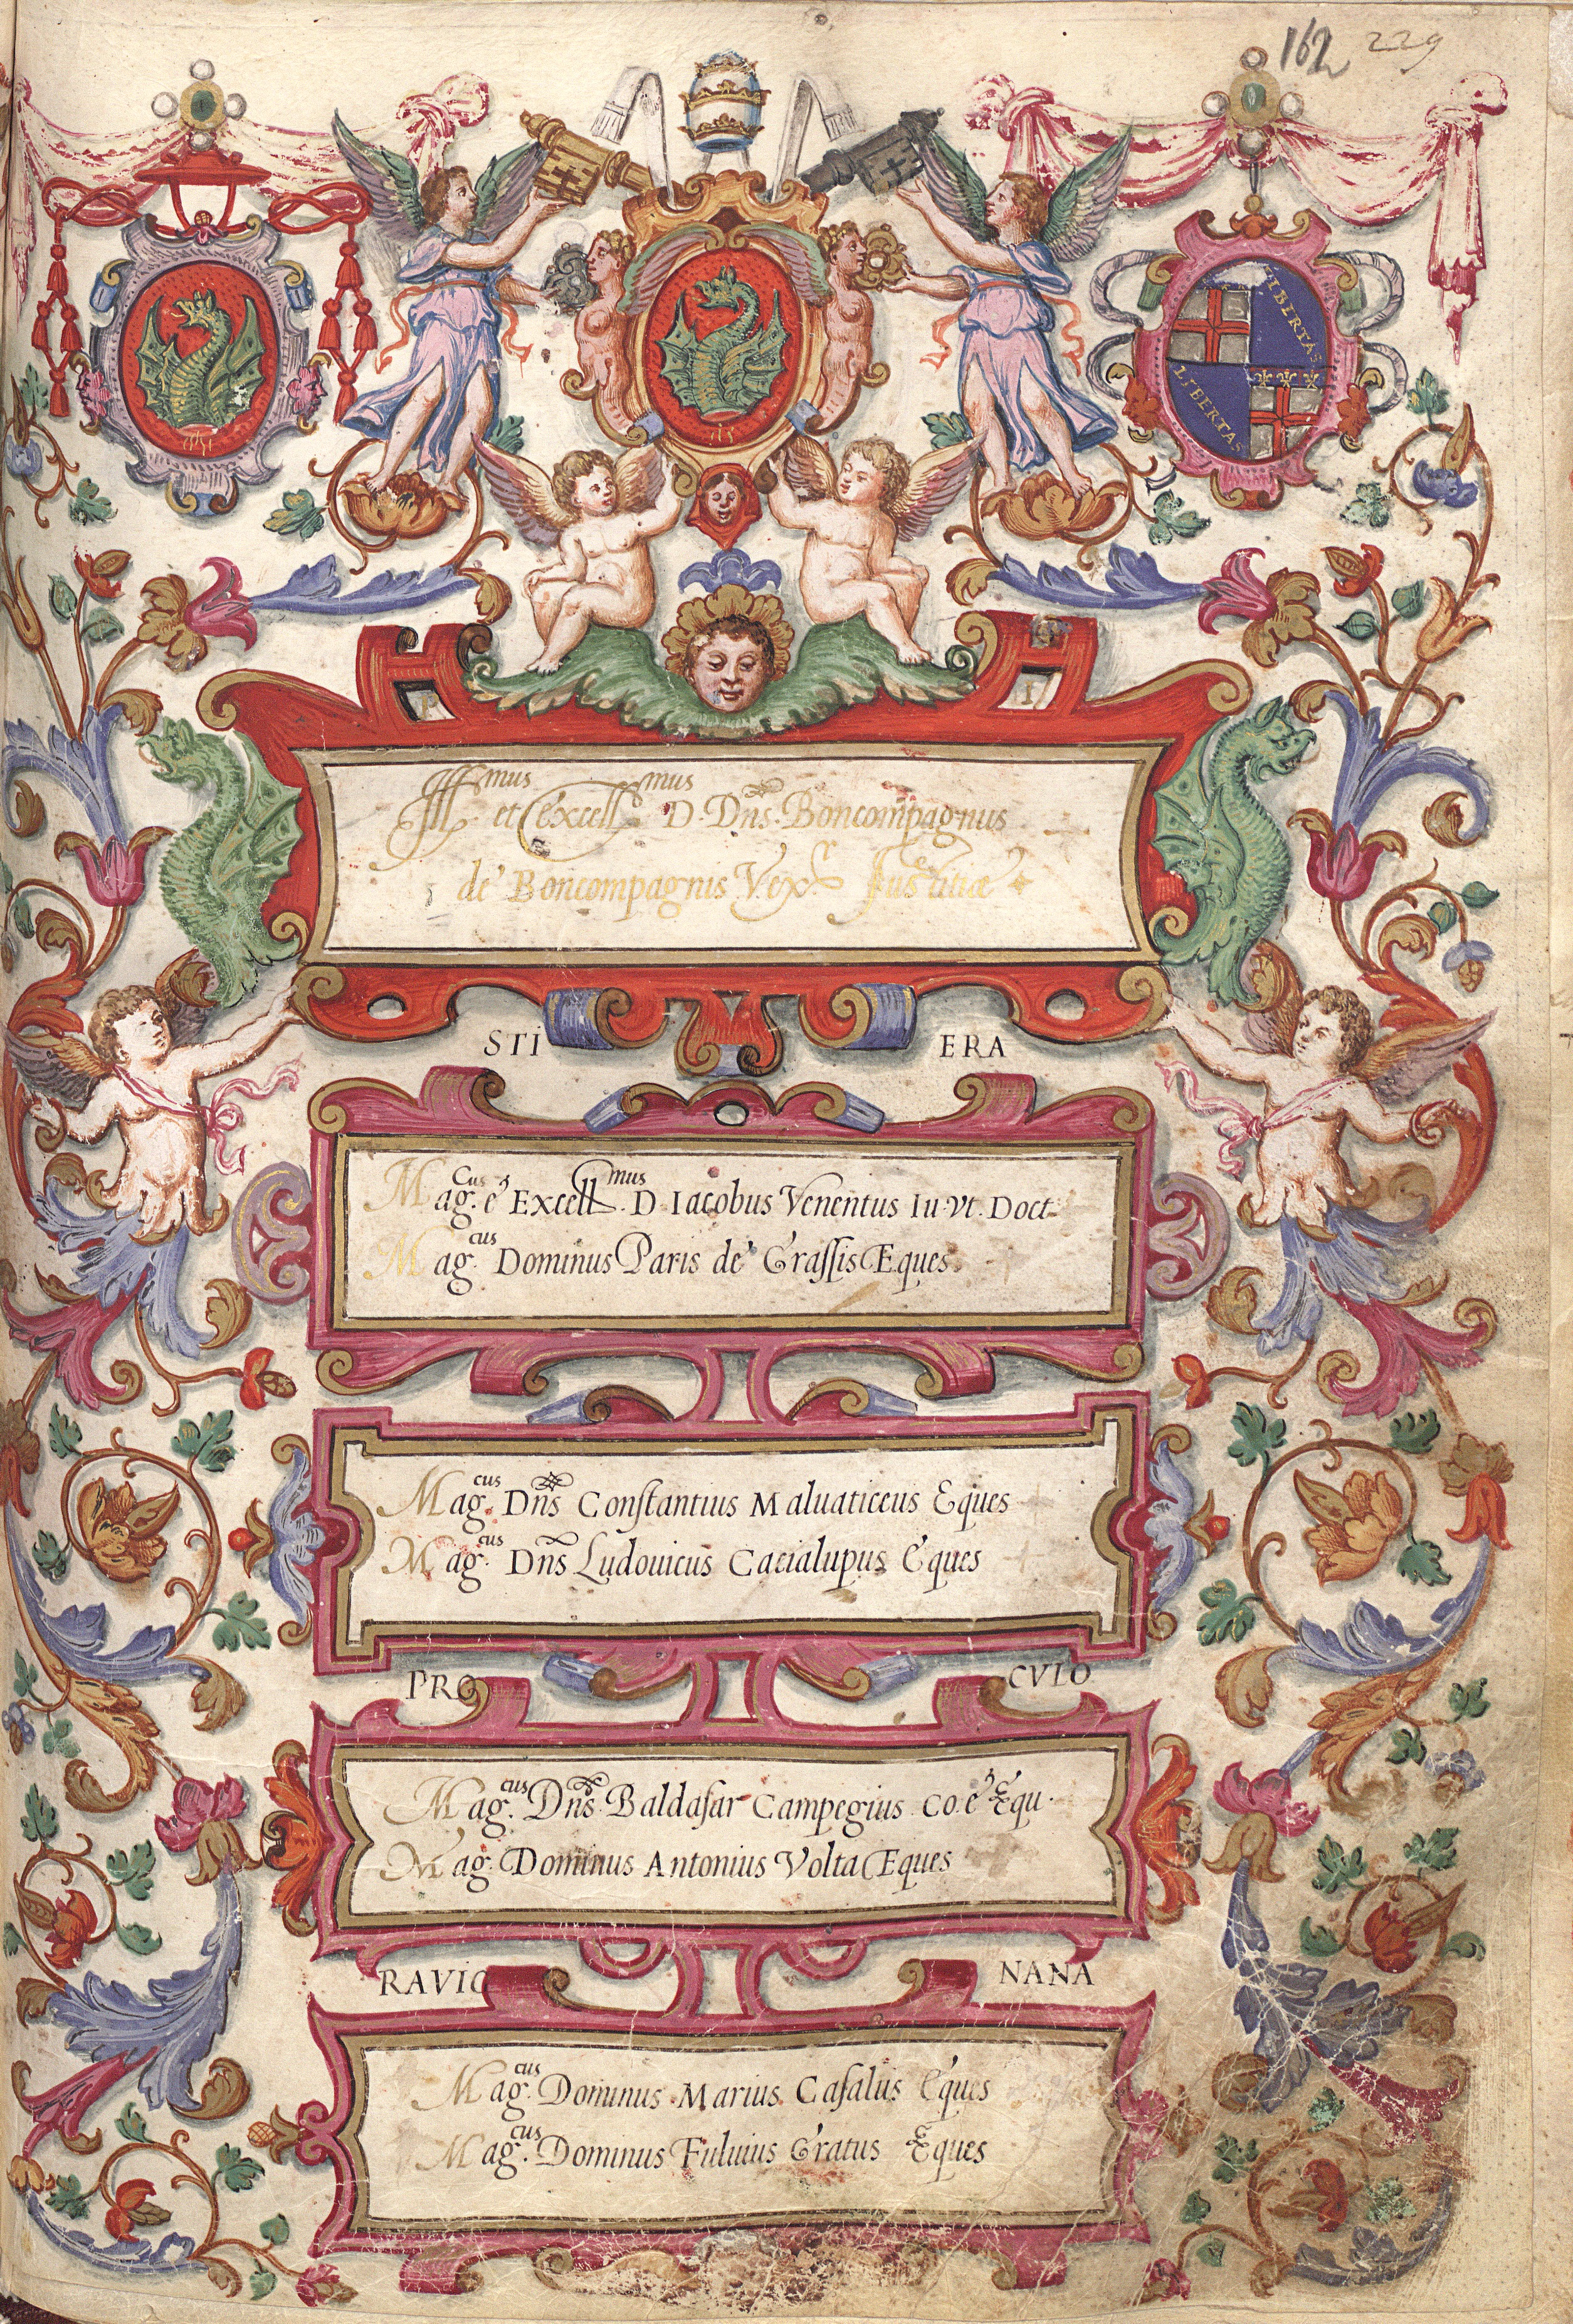 162 229
LIBERTAS
LIBERTAS
P I
Illmus et excellmus D. Dns. Boncompagnus
de Boncompagnis Vexr Iustitiæ
STI ERA
Mag.cus e Excellmus D. Iacobus Venentus Iu. Vt. Doct.
Mag.cus Dominus Paris de Grassis Eques
Mag.cus Dns Constantius Maluaticeus Eques
Mag.cus Dns Ludouicus Cacialupus Eques
PRO CVLO
Mag.cus Dns. Baldasar Campegius. Co. e Equ.
Mag. Dominus Antonius Volta Eques
RAVIG NANA
Mag.cus Dominus Marius Casalius Eques
Mag.cus Dominus Fuluius Gratus Eques